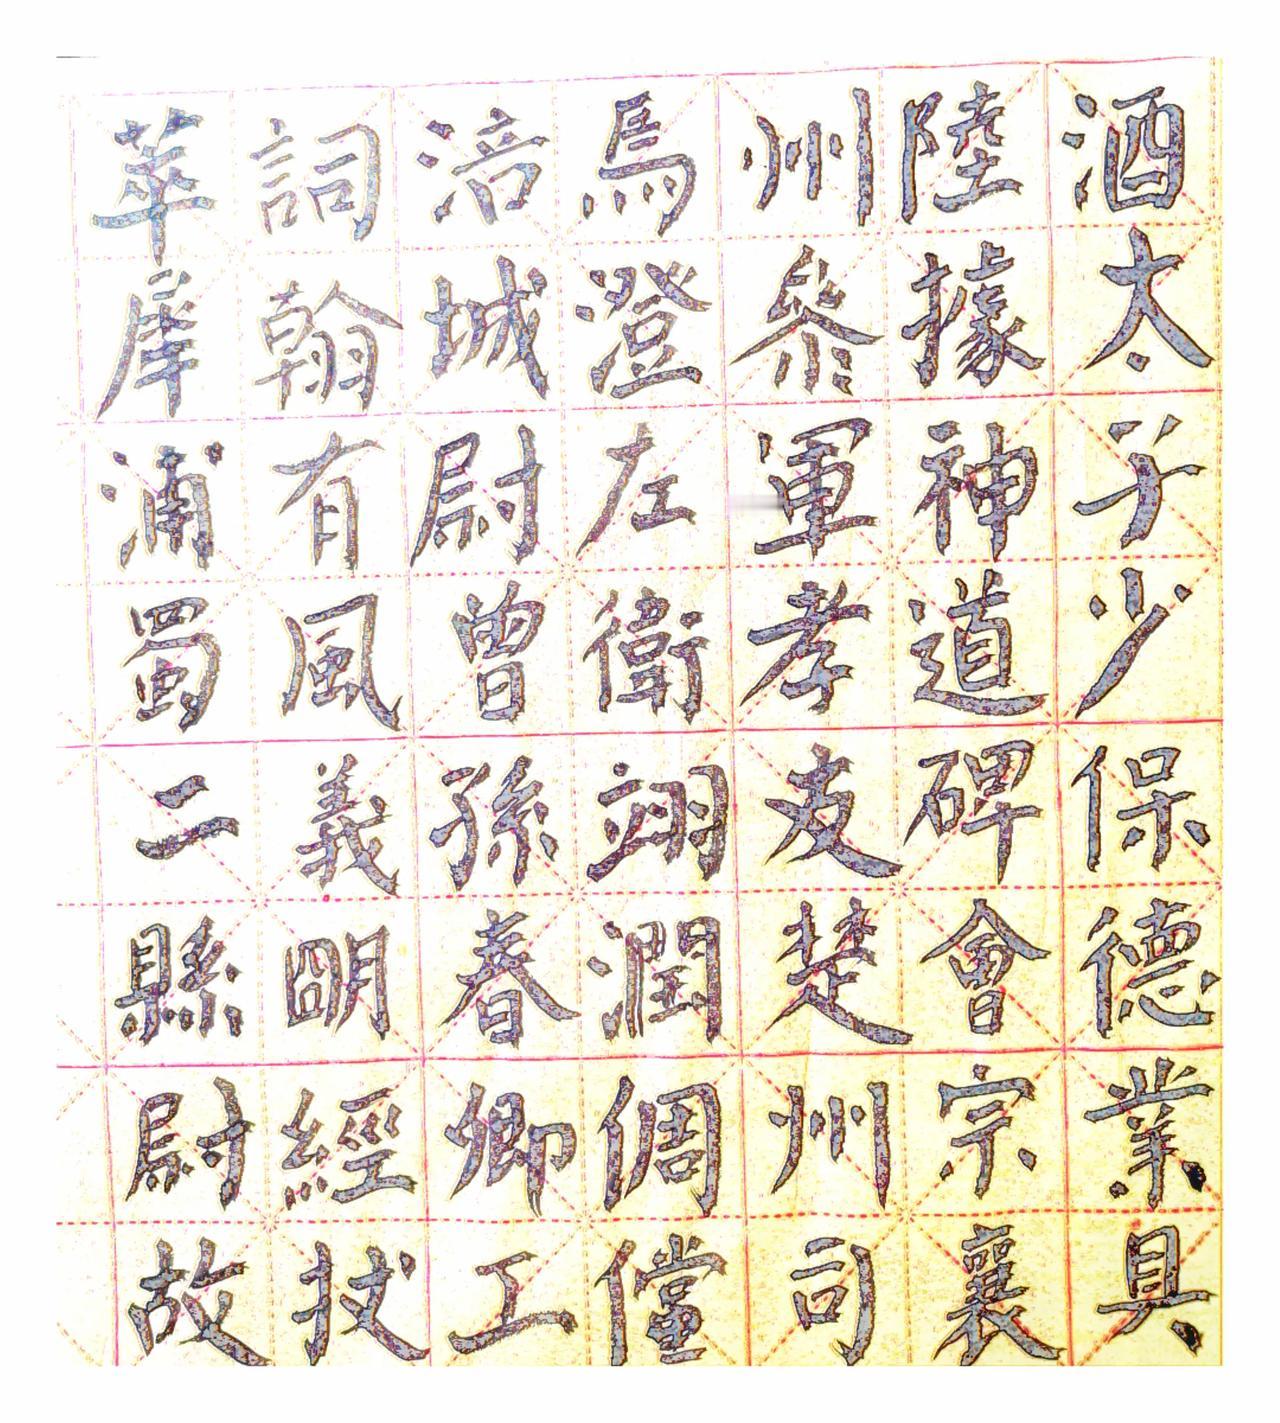 酒太子少保德業具
陸據神道碑會宗襄
州參軍孝友楚州司
馬澄左衛翊潤倜儻
涪城尉曾孫春卿工
詞翰有風義明經拔
萃犀浦蜀二縣尉故